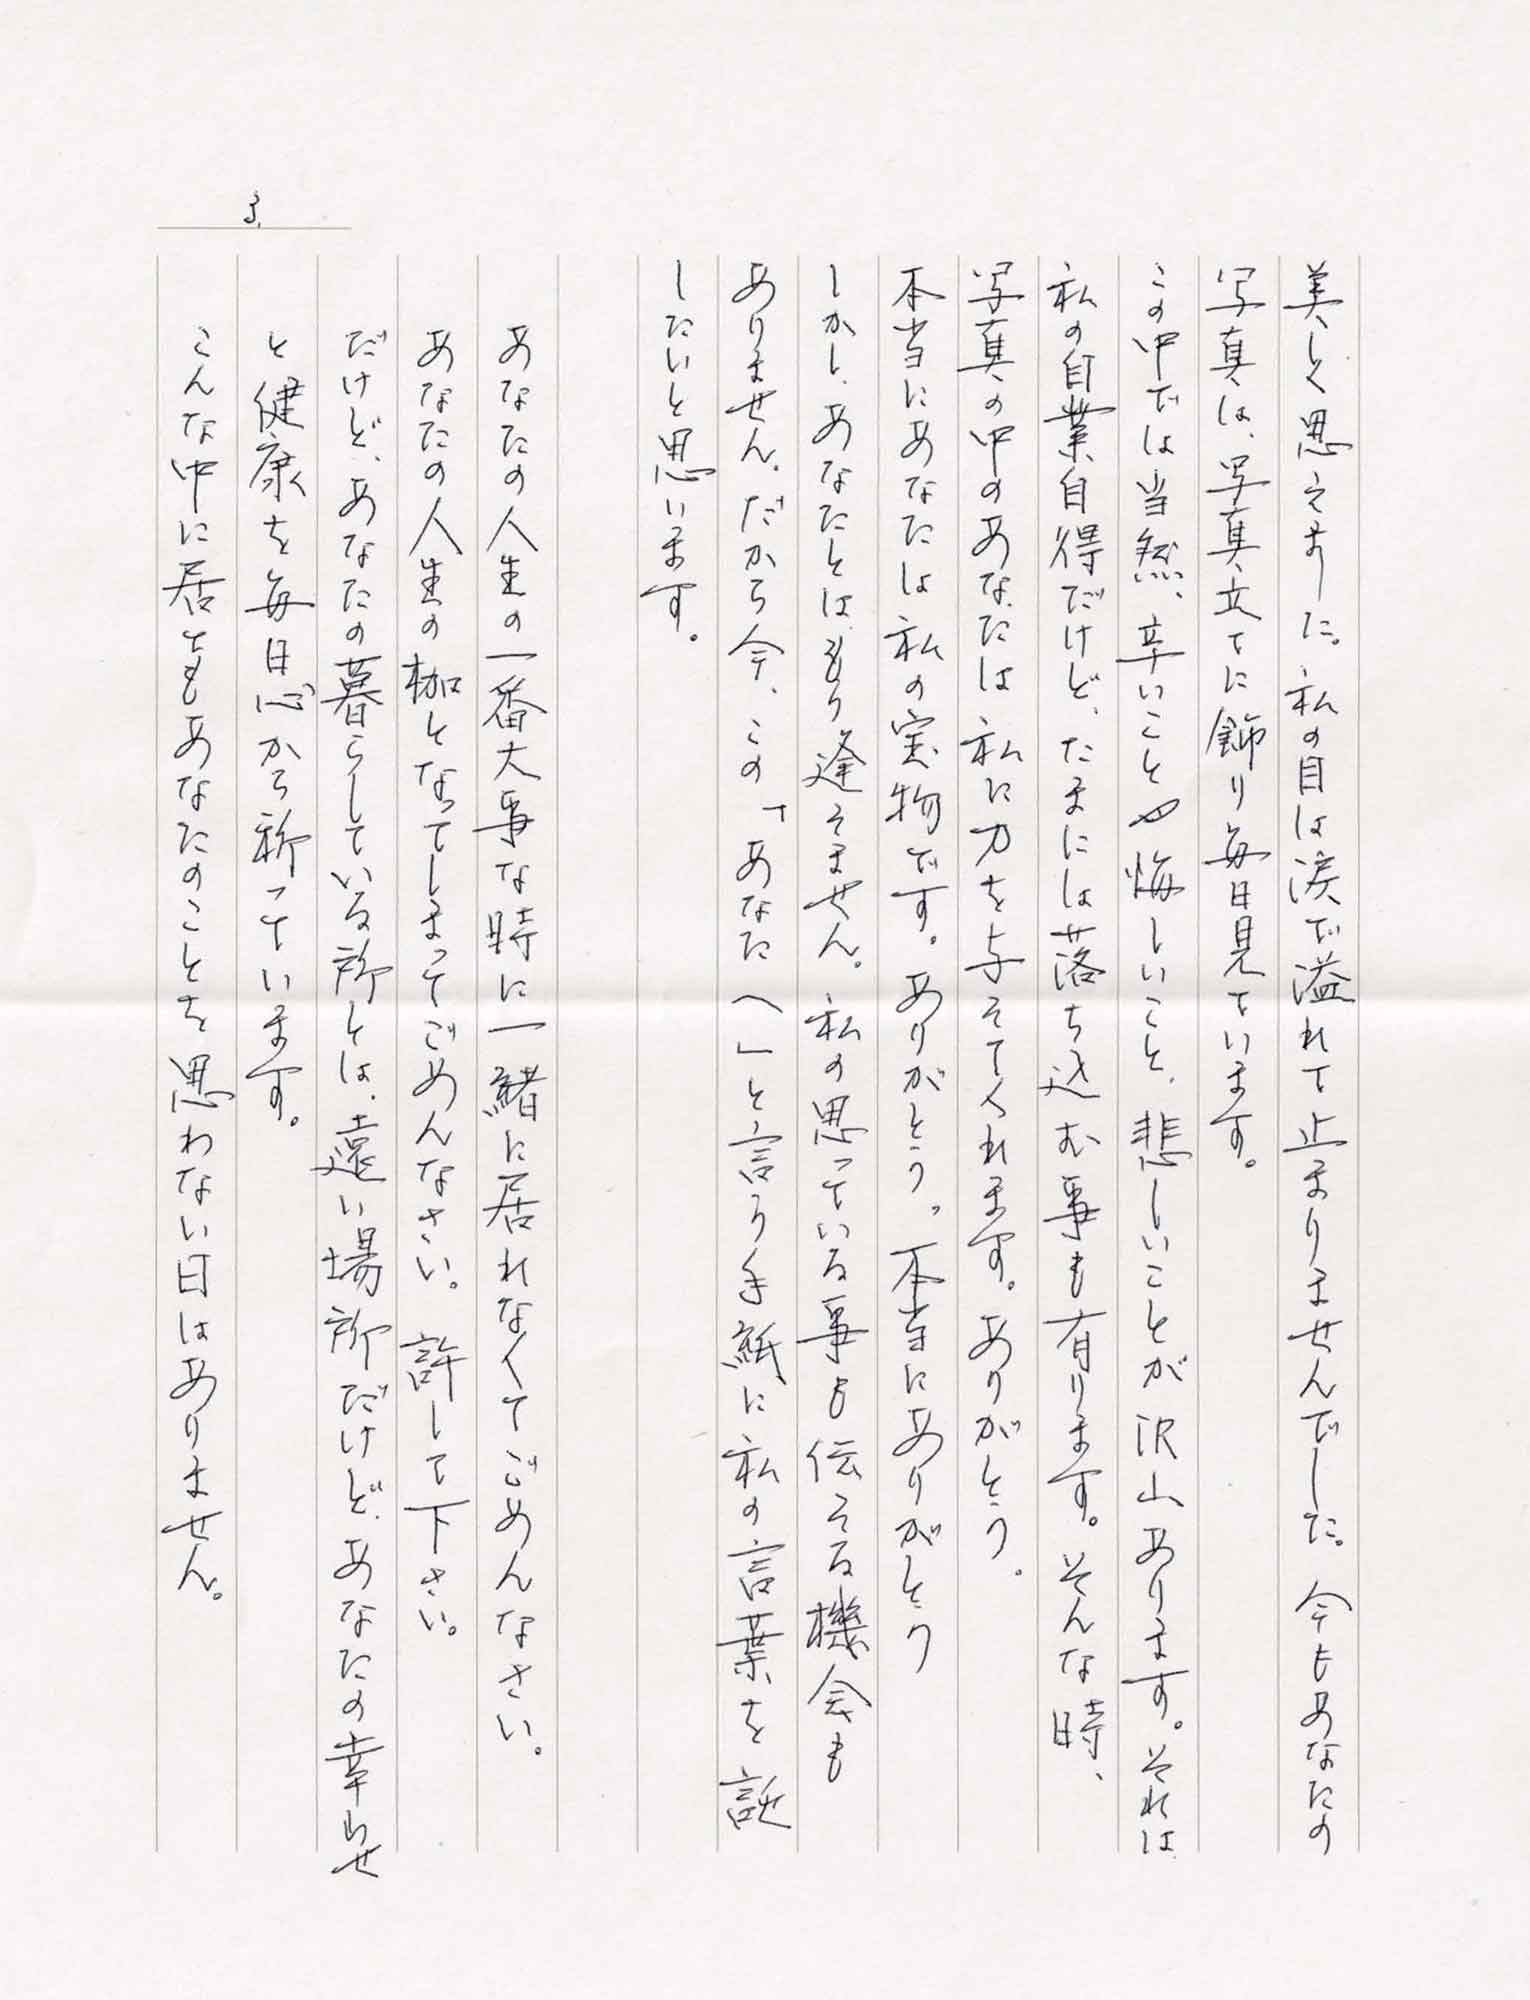 3.
美しく思えました。私の目は涙で溢れて止まりませんでした。今もあなたの
写真は、写真立てに飾り毎日見ています。
この中では当然、辛いことや悔しいこと、悲しいことが沢山あります。それは
私の自業自得だけど、たまには落ち込む事も有ります。そんな時、
写真の中のあなたは私に力を与えてくれます。ありがとう。
本当にあなたは私の宝物です。ありがとう。本当にありがとう
しかし、あなたとはもう逢えません。私の思っている事も伝える機会も
ありません。だから今、この「あなたへ」と言う手紙に私の言葉を託
したいと思います。
あなたの人生の一番大事な時に一緒に居れなくてごめんなさい。
あなたの人生の枷となってしまってごめんなさい。許して下さい。
だけど、あなたの暮らしている所とは、遠い場所だけど、あなたの幸わせ
と健康を毎日心から祈っています。
こんな中に居てもあなたのことを思わない日はありません。